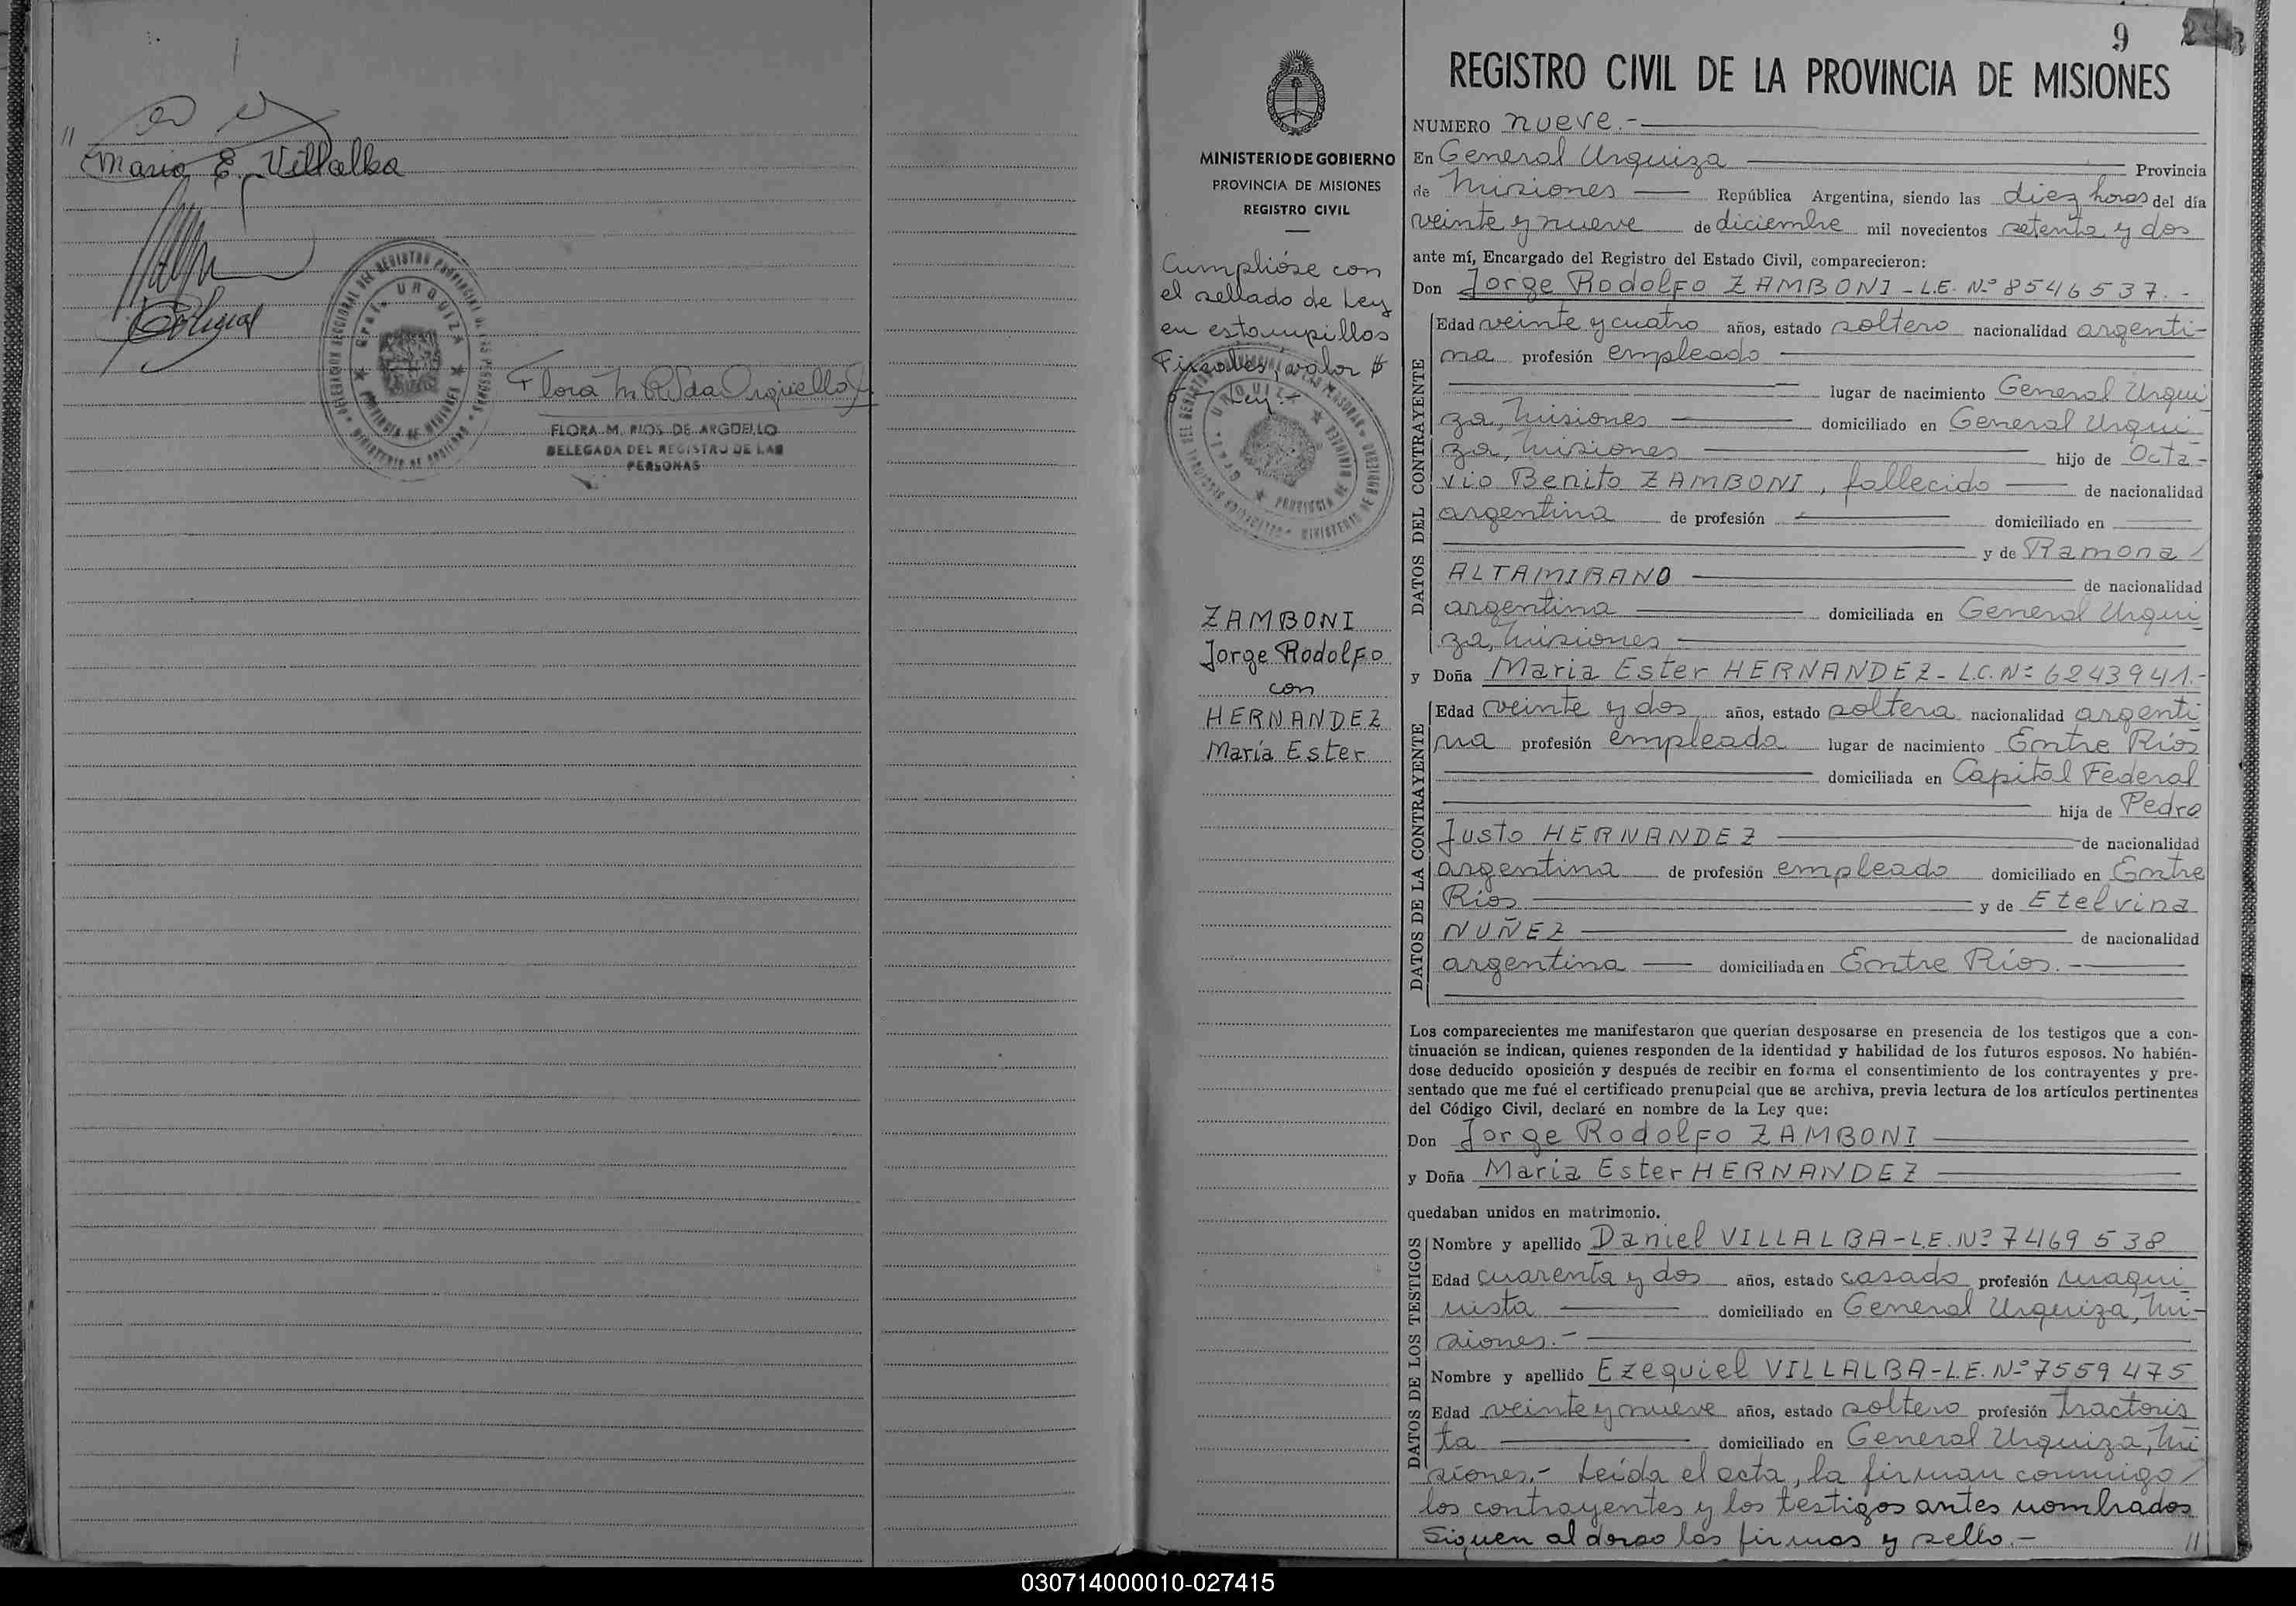 //
Maria E. Villalba
DELEGACION SECCIONAL DEL REGISTRO PROVINCIAL DE LAS PERSONAS
MINISTERIO DE GOBIERNO
Gral. URQUIZA
PROVINCIA DE MISIONES
FLORA M. RIOS DE ARGÜELLO
DELEGADA DEL REGISTRO DE LAS
PERSONAS
MINISTERIO DE GOBIERNO
PROVINCIA DE MISIONES
REGISTRO CIVIL
Cumplióse con
el sellado de Ley
en estampillas
Fiscales, valor $
Ley.-
ZAMBONI
Jorge Rodolfo
con
HERNANDEZ
María Ester
9
REGISTRO CIVIL DE LA PROVINCIA DE MISIONES
NUMERO nueve.-
En General Urquiza Provincia
de Misiones República Argentina, siendo las diez horas del día
veinte y nueve de diciembre mil novecientos setenta y dos
ante mí, Encargado del Registro del Estado Civil, comparecieron:
Don Jorge Rodolfo ZAMBONI - L.E. Nº 8546537.-
DATOS DEL CONTRAYENTE
Edad veinte y cuatro años, estado soltero nacionalidad argenti-
na profesión empleado
lugar de nacimiento General Urqui
za, Misiones domiciliado en General Urqui
za, Misiones hijo de Octa-
vio Benito ZAMBONI, fallecido de nacionalidad
argentina de profesión domiciliado en
y de Ramona /
ALTAMIRANO de nacionalidad
argentina domiciliada en General Urqui
za, Misiones
y Doña Maria Ester HERNANDEZ - L.C. Nº 6243941.-
DATOS DE LA CONTRAYENTE
Edad veinte y dos años, estado soltera nacionalidad argenti
na profesión empleada lugar de nacimiento Entre Ríos
domiciliada en Capital Federal
hija de Pedro
Justo HERNANDEZ de nacionalidad
argentina de profesión empleado domiciliado en Entre
Ríos y de Etelvina
NUÑEZ de nacionalidad
argentina domiciliada en Entre Ríos.-
Los comparecientes me manifestaron que querían desposarse en presencia de los testigos que a con-
tinuación se indican, quienes responden de la identidad y habilidad de los futuros esposos. No habién-
dose deducido oposición y después de recibir en forma el consentimiento de los contrayentes y pre-
sentado que me fué el certificado prenupcial que se archiva, previa lectura de los artículos pertinentes
del Código Civil, declaré en nombre de la Ley que:
Don Jorge Rodolfo ZAMBONI
y Doña Maria Ester HERNANDEZ
quedaban unidos en matrimonio.
DATOS DE LOS TESTIGOS
Nombre y apellido Daniel VILLALBA - L.E. Nº 7469538
Edad cuarenta y dos años, estado casado profesión maqui
nista domiciliado en General Urquiza, Mi-
siones.-
Nombre y apellido Ezequiel VILLALBA - L.E. Nº 7559475
Edad veinte y nueve años, estado soltero profesión tractoris
ta domiciliado en General Urquiza, Mi
siones.- Leída el acta, la firman conmigo /
los contrayentes y los testigos antes nombrados
Siguen al dorso las firmas y sello.- //
030714000010-027415